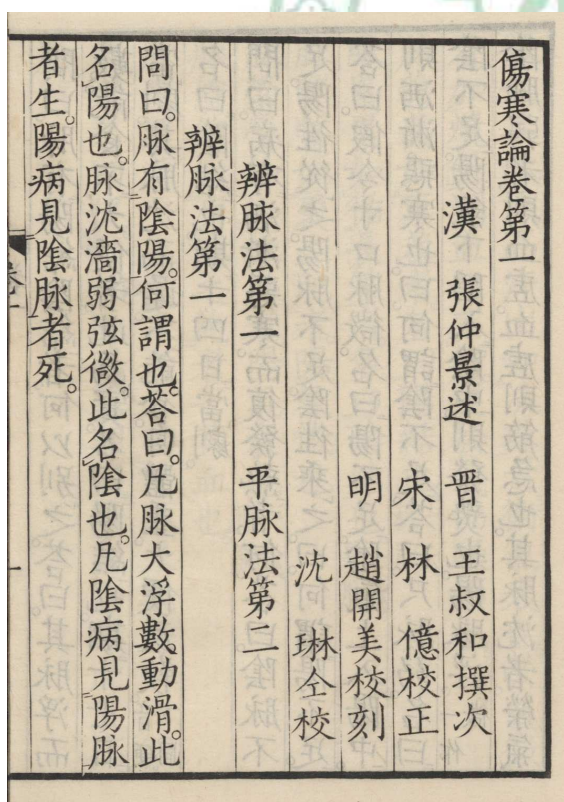 傷寒論卷第一
漢　張仲景述　晋　王叔和撰次
宋　林　億校正
明　趙開美校刻
沈　琳仝校
辨脉法第一　平脉法第二
辨脉法第一
問曰。脉有陰陽。何謂也。荅曰。凡脉大浮數動滑。此
名陽也。脉沈濇弱弦微。此名陰也。凡陰病見陽脉
者生。陽病見陰脉者死。